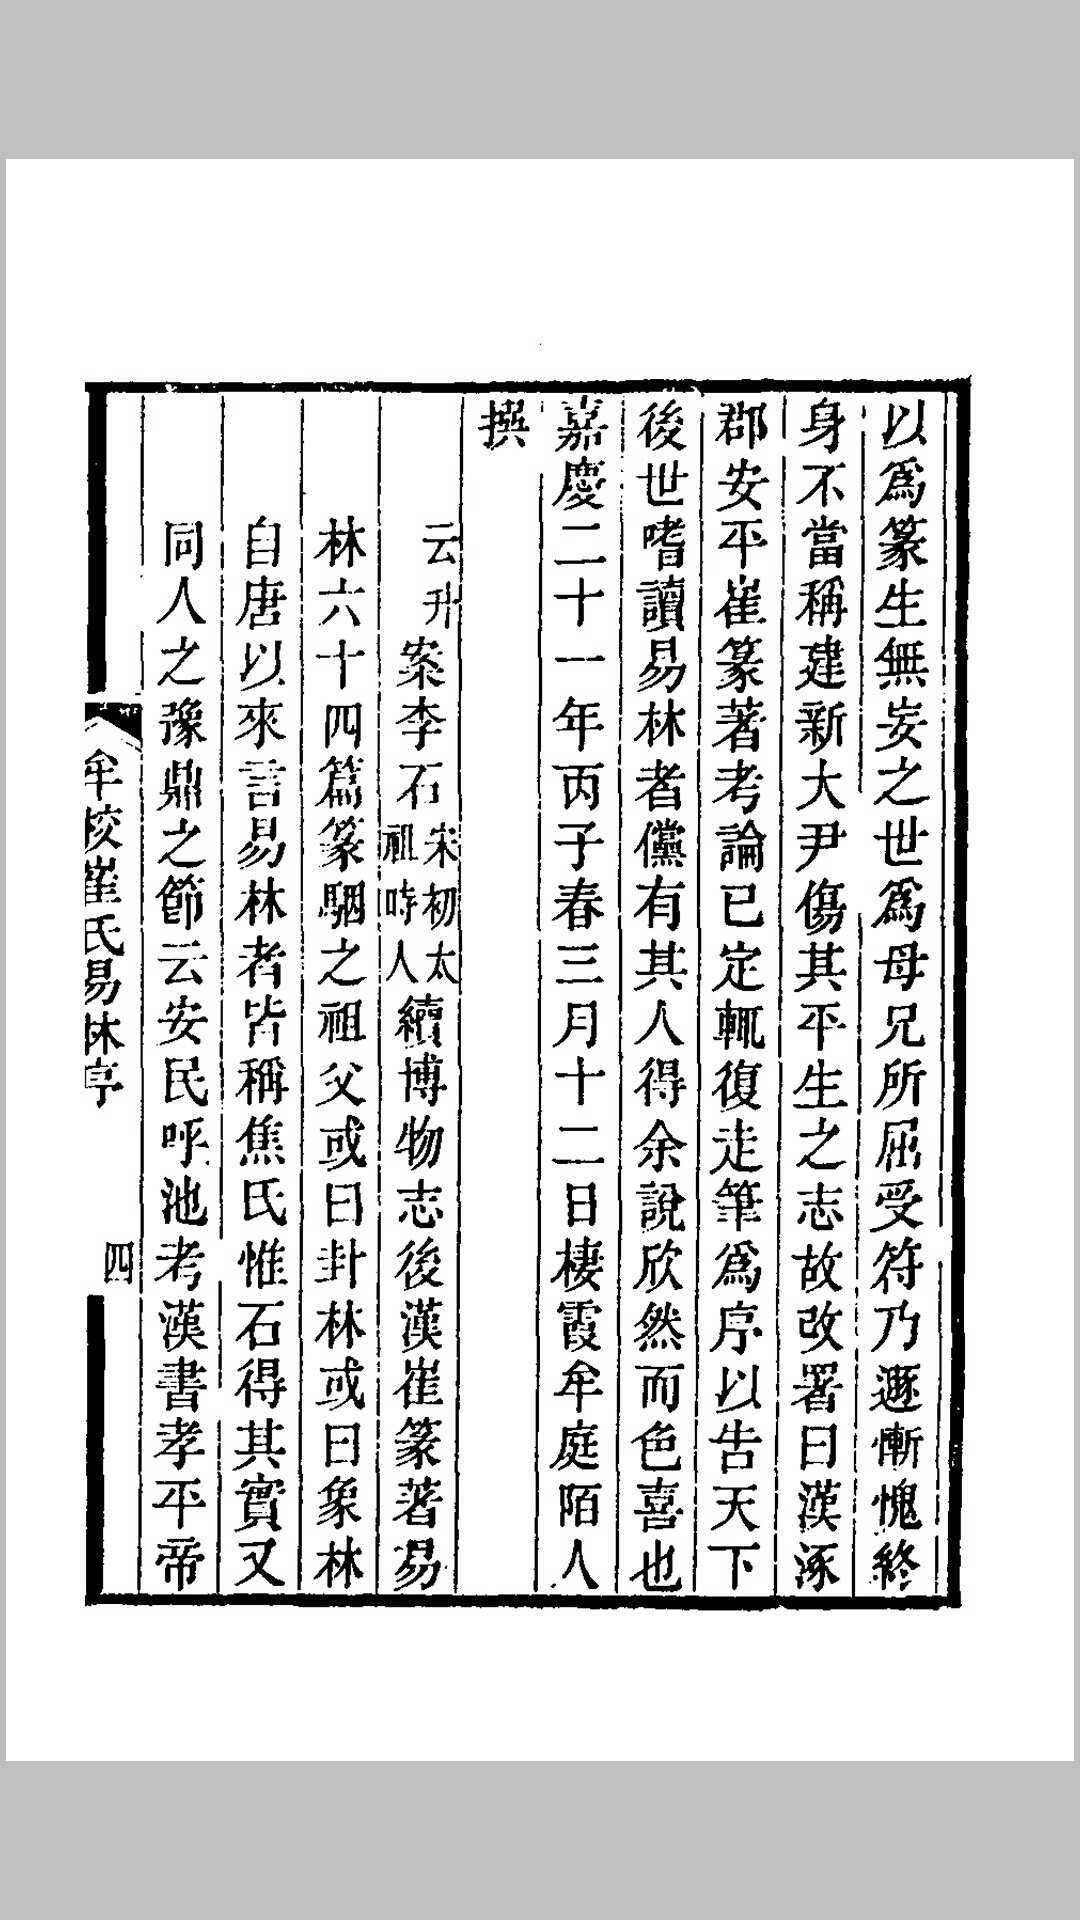 以爲篆生無妄之世爲母兄所屈受符乃遯慚愧終
身不當稱建新大尹傷其平生之志故改署曰漢涿
郡安平崔篆著考論已定輒復走筆爲序以告天下
後世嗜讀易林者儻有其人得余說欣然而色喜也
嘉慶二十一年丙子春三月十二日棲霞牟庭陌人
撰
云升案李石宋初太祖時人續博物志後漢崔篆著易
林六十四篇篆駰之祖父或曰卦林或曰象林
自唐以來言易林者皆稱焦氏惟石得其實又
同人之豫鼎之節云安民呼池考漢書孝平帝
牟校崔氏易林序
四